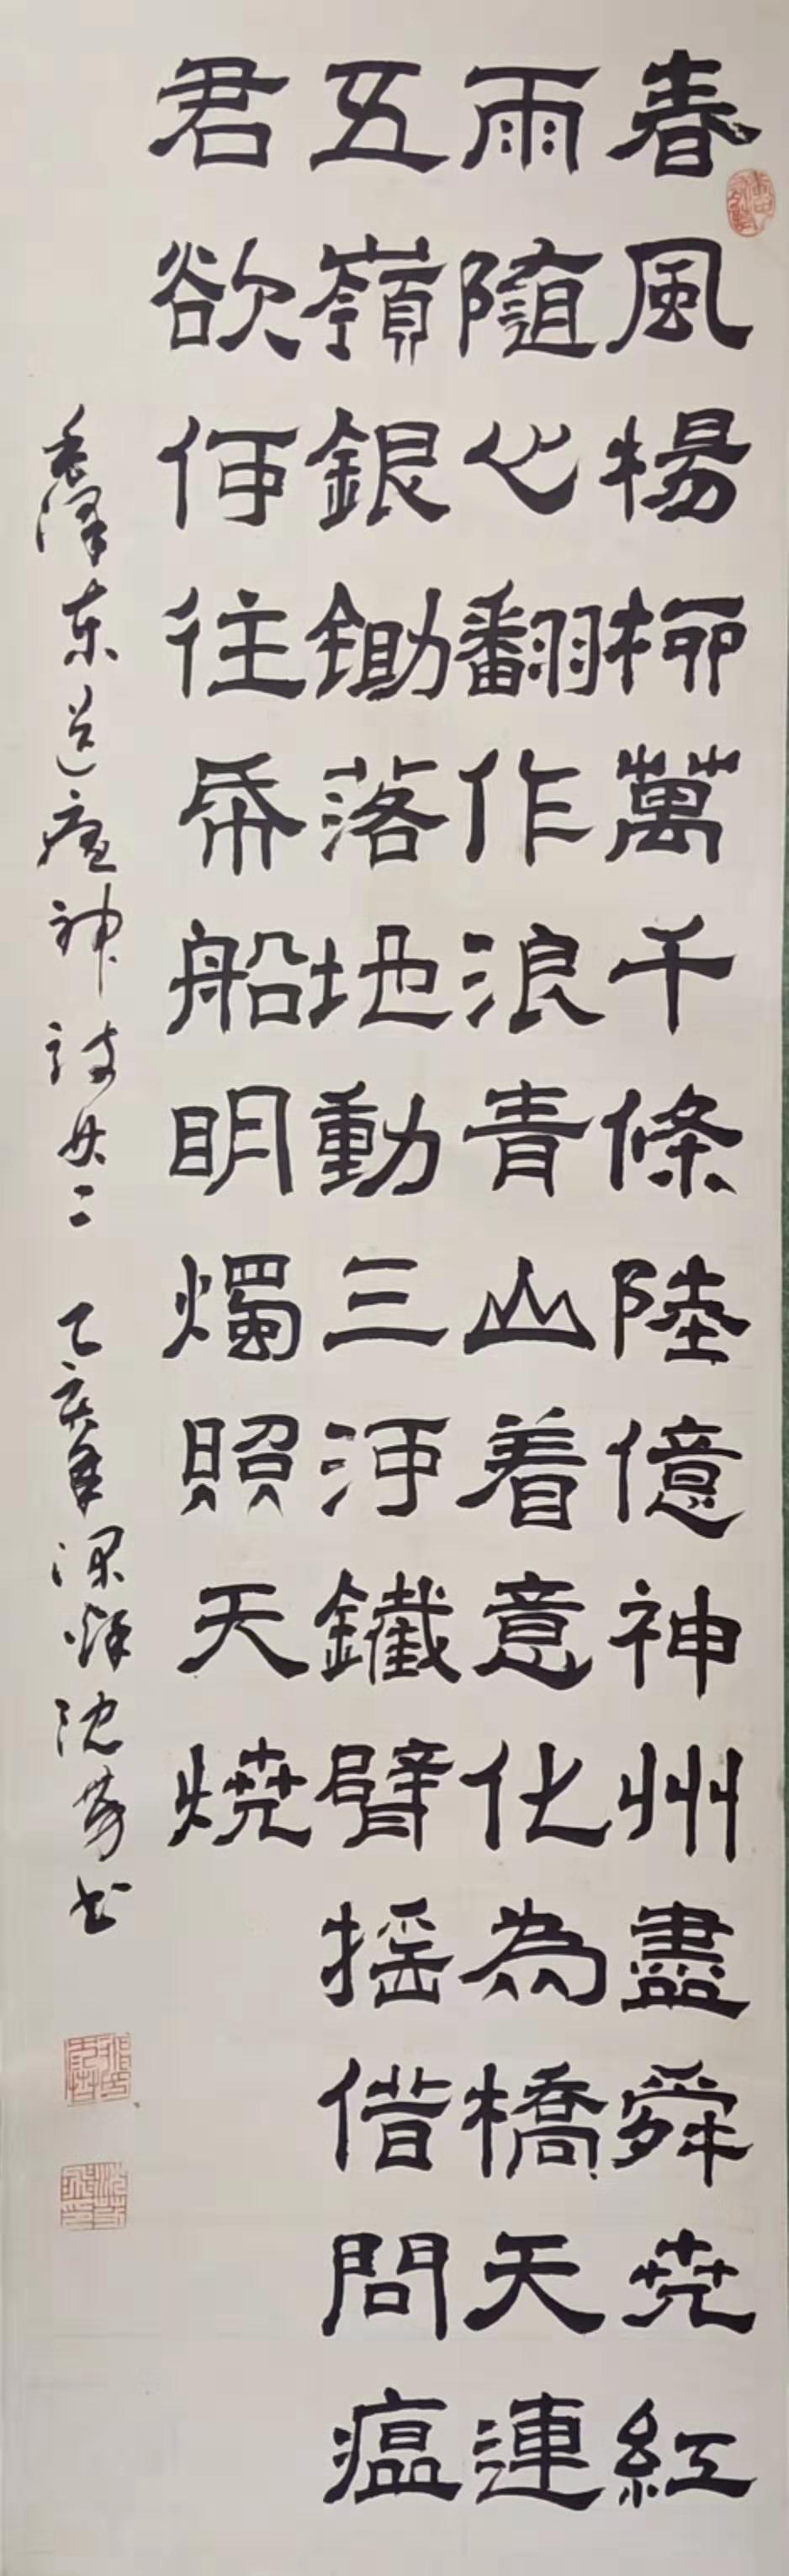 春風楊柳萬千條陸億神州盡舜尭紅
雨隨心翻作浪青山着意化為橋天連
五嶺銀鋤落地動三河鐵臂摇借問瘟
君欲何往帋船明燭照天燒
毛澤东送瘟神詩其二 乙亥年深圳沈芳书